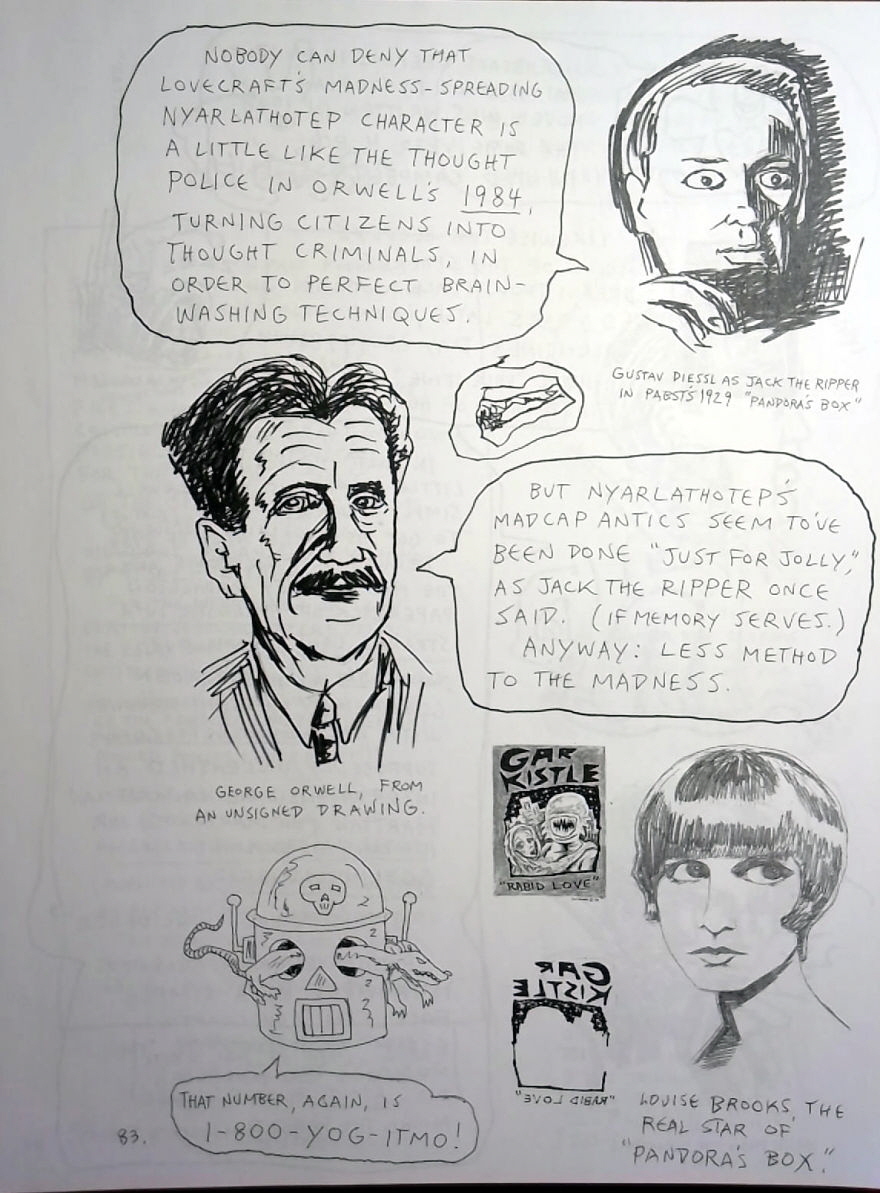 NOBODY CAN DENY THAT
LOVECRAFT'S MADNESS-SPREADING
NYARLATHOTEP CHARACTER IS
A LITTLE LIKE THE THOUGHT
POLICE IN ORWELL'S 1984,
TURNING CITIZENS INTO
THOUGHT CRIMINALS, IN
ORDER TO PERFECT BRAIN-
WASHING TECHNIQUES.
GUSTAV DIESSL AS JACK THE RIPPER
IN PABST'S 1929 "PANDORA'S BOX"
BUT NYARLATHOTEP'S
MADCAP ANTICS SEEM TO'VE
BEEN DONE "JUST FOR JOLLY,"
AS JACK THE RIPPER ONCE
SAID. (IF MEMORY SERVES.)
ANYWAY: LESS METHOD
TO THE MADNESS.
GEORGE ORWELL, FROM
AN UNSIGNED DRAWING.
GAR
KISTLE
"RABID LOVE"
GAR
KISTLE
"RABID LOVE"
THAT NUMBER, AGAIN, IS
1-800-YOG-ITMO!
LOUISE BROOKS, THE
REAL STAR OF
"PANDORA'S BOX."
83.